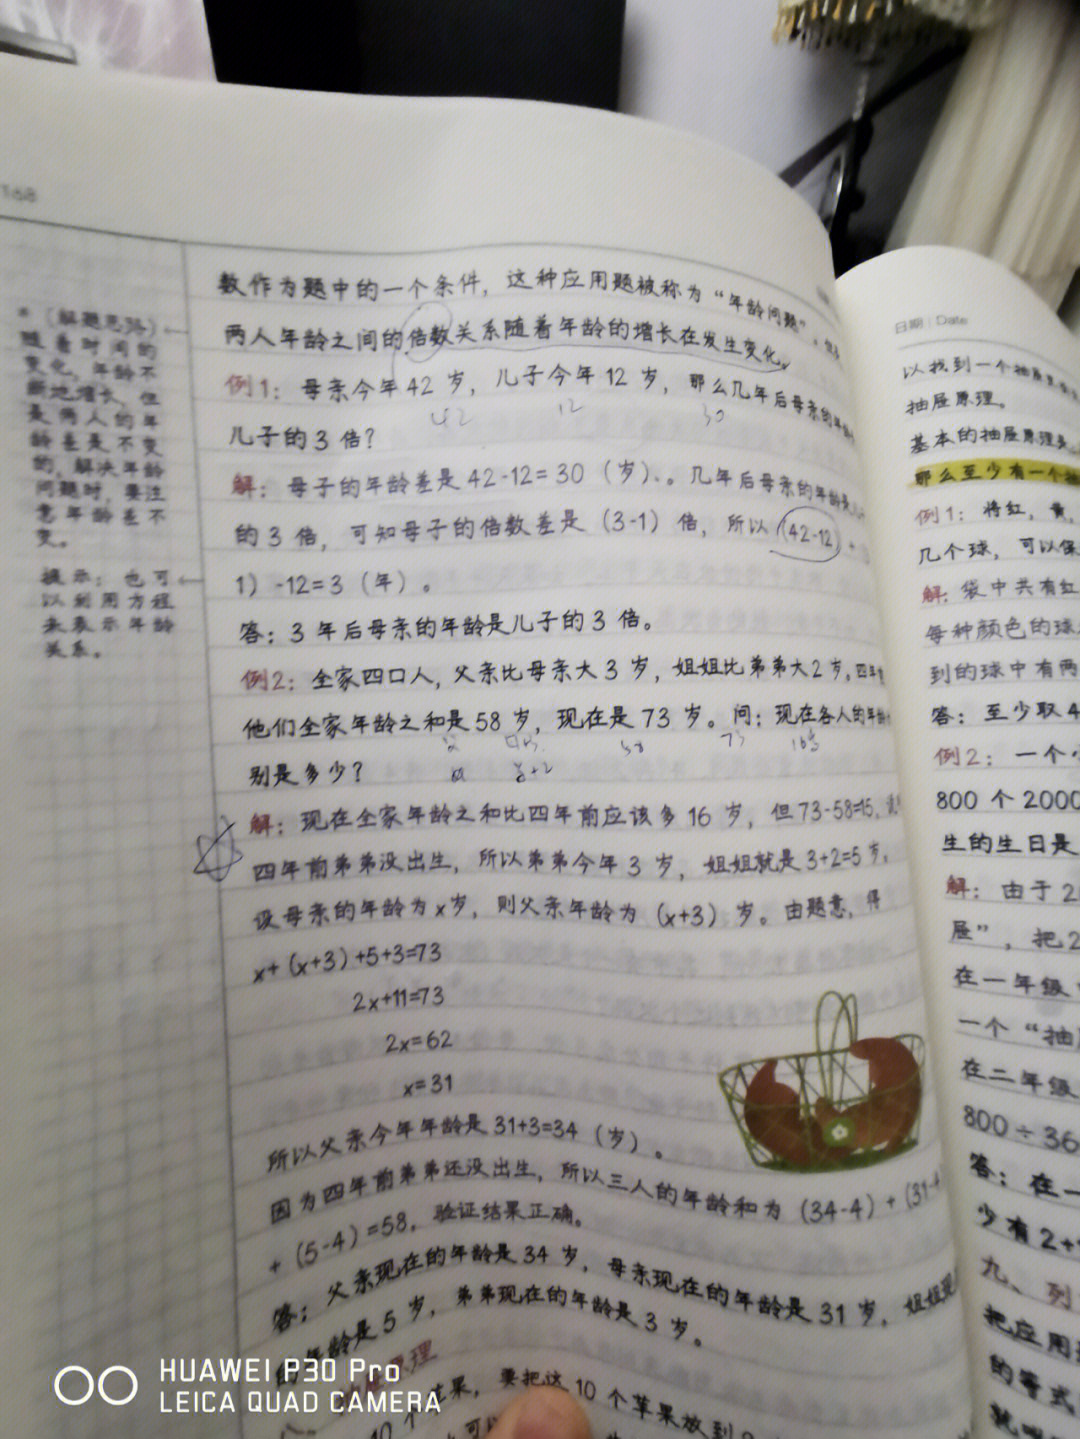 168
数作为题中的一个条件，这种应用题被称为“年龄问题”。
两人年龄之间的倍数关系随着年龄的增长在发生变化。
例1：母亲今年42岁，儿子今年12岁，那么几年后母亲的年龄
42 12 30
儿子的3倍？
解：母子的年龄差是42-12=30（岁）、。几年后母亲的年龄是
的3倍，可知母子的倍数差是（3-1）倍，所以（42-12）
1）-12=3（年）。
答：3年后母亲的年龄是儿子的3倍。
例2：全家四口人，父亲比母亲大3岁，姐姐比弟弟大2岁。四年
他们全家年龄之和是58岁，现在是73岁。问：现在各人的年龄
58 73
别是多少？
解：现在全家年龄之和比四年前应该多16岁，但73-58=15，
四年前弟弟没出生，所以弟弟今年3岁，姐姐就是3+2=5岁。
设母亲的年龄为x岁，则父亲年龄为（x+3）岁。由题意，得
x+（x+3）+5+3=73
2x+11=73
2x=62
x=31
所以父亲今年年龄是31+3=34（岁）。
因为四年前弟弟还没出生，所以三人的年龄和为（34-4）+（31-4
+（5-4）=58，验证结果正确。
答：父亲现在的年龄是34岁，母亲现在的年龄是31岁，姐姐现
的年龄是5岁，弟弟现在的年龄是3岁。
原理
10个苹果，要把这10个苹果放到
*（解题思路）
随着时间的
变化，年龄不
断地增长，但
是两人的年
龄差是不变
的，解决年龄
问题时，要注
意年龄差不
变。
提示：也可
以利用方程
来表示年龄
关系。
日期 | Date
以找到一个抽屉
抽屉原理。
基本的抽屉原理是
那么至少有一个抽
例1：将红，黄，
几个球，可以保
解：袋中共有红
每种颜色的球
到的球中有两
答：至少取4
例2：一个小
800个2000
生的生日是
解：由于2
屉”，把2
在一年级
一个“抽
在二年级
800÷36
答：在一
少有2+
九、列
把应用
的等式
HUAWEI P30 Pro
LEICA QUAD CAMERA